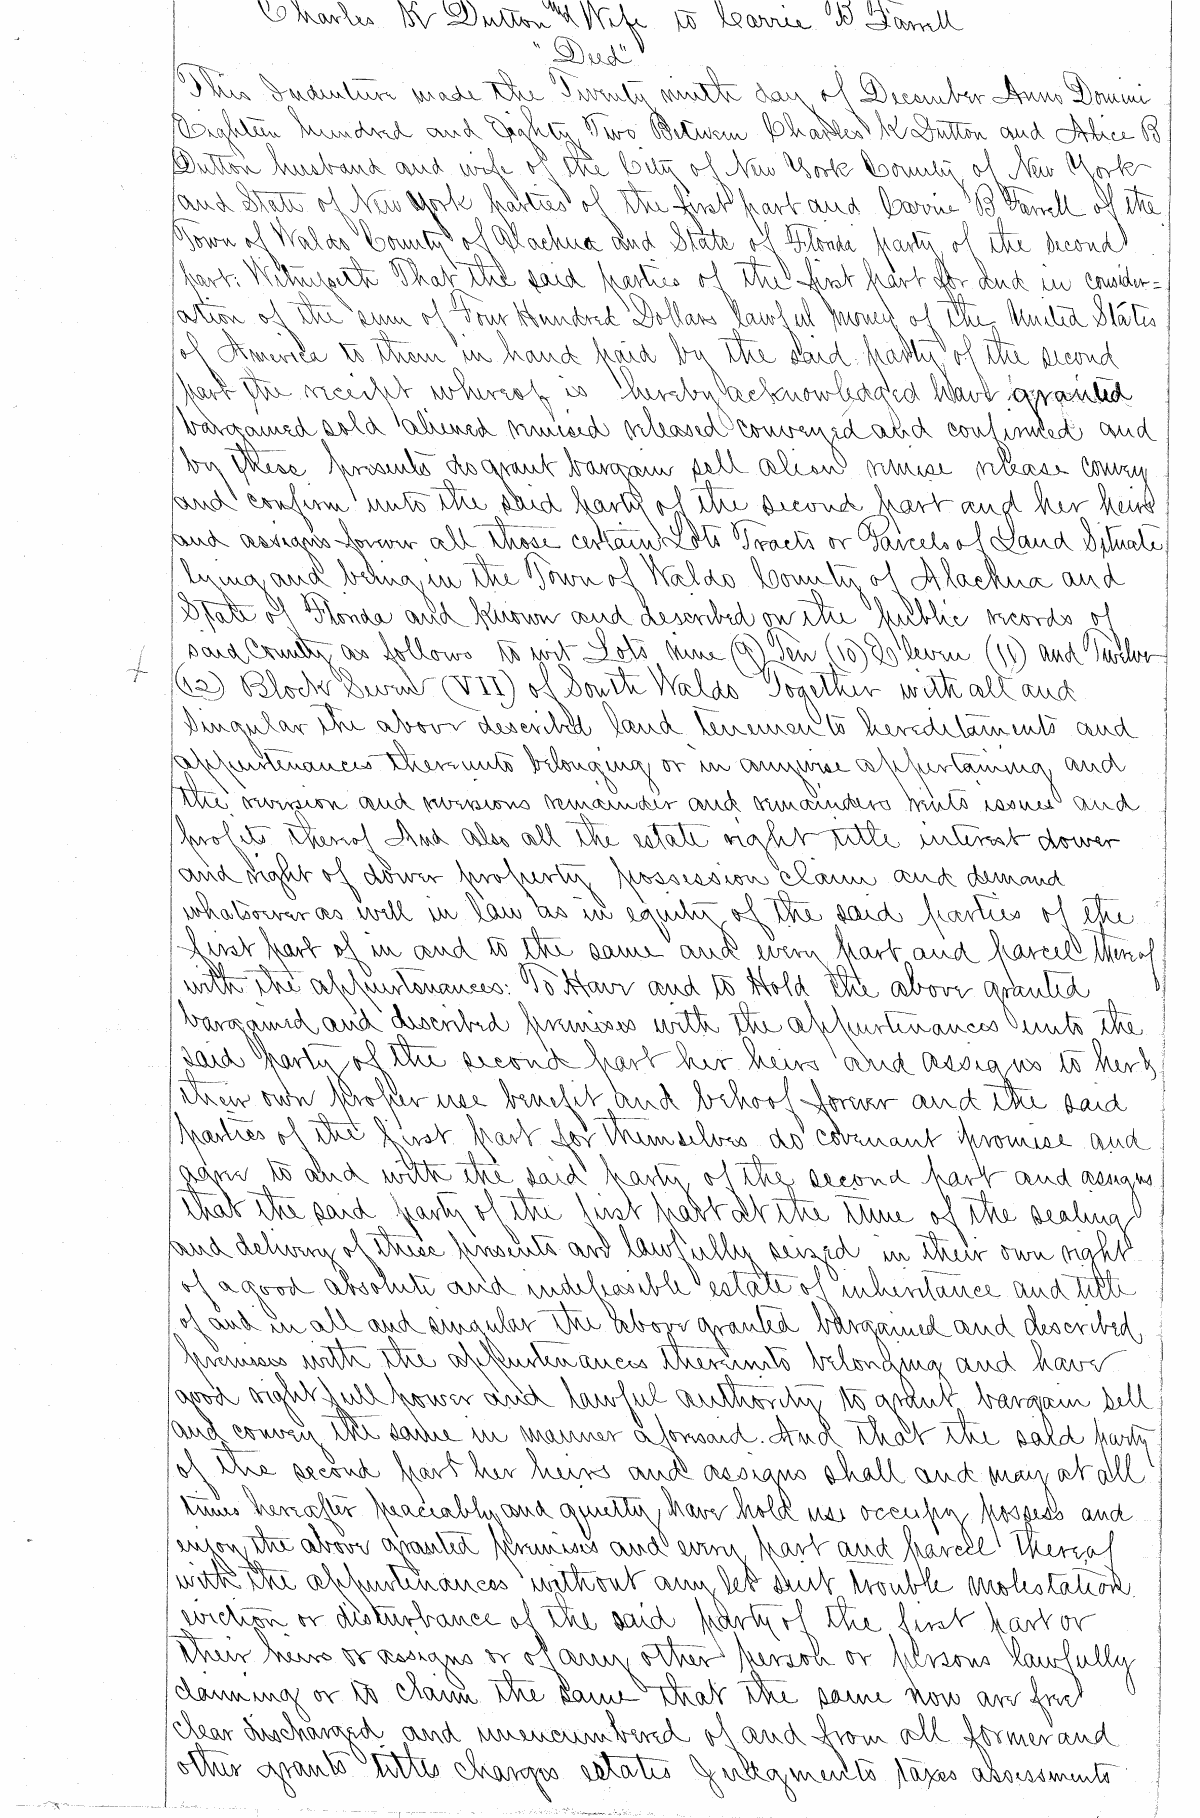 Charles K Dutton and Wife to Carrie B Farrell
"Deed"
This Indenture made the Twenty ninth day of December Anno Domini
Eighteen hundred and Eighty Two Between Charles K Dutton and Alice B
Dutton husband and wife of the City of New York County of New York
and State of New York parties of the first part and Carrie B Farrell of the
Town of Waldo County of Alachua and State of Florida party of the second
part: Witnesseth That the said parties of the first part for and in consider=
ation of the sum of Four Hundred Dollars lawful money of the United States
of America to them in hand paid by the said party of the second
part the receipt whereof is hereby acknowledged have granted
bargained sold aliened remised released conveyed and confirmed and
by these presents do grant bargain sell alien remise release convey
and confirm unto the said party of the second part and her heirs
and assigns forever all those certain Lots Tracts or Parcels of Land Situate
lying and being in the Town of Waldo County of Alachua and
State of Florida and known and described on the public records of
said County as follows to wit Lots nine (9) Ten (10) Eleven (11) and Twelve
(12) Block Seven (VII) of South Waldo Together with all and
Singular the above described land tenements hereditaments and
appurtenances thereunto belonging or in anywise appertaining and
the revision and reversions remainder and remainders rents issues and
profits thereof And also all the estate right title interest dower
and right of dower property possession claim and demand
whatsoever as well in law as in equity of the said parties of the
first part of in and to the same and every part and parcel thereof
with the appurtenances: To Have and to Hold the above granted
bargained and described premises with the appurtenances unto the
said party of the second part her heirs and assigns to her &
their own proper use benefit and behoof forever and the said
parties of the first part for themselves do covenant promise and
agree to and with the said party of the second part and assigns
that the said party of the first part at the time of the sealing
and delivery of these presents are lawfully seized in their own right
of a good absolute and indefeasible estate of inheritance and title
of and in all and singular the above granted bargained and described
premises with the appurtenances thereunto belonging and have
good right full power and lawful authority to grant bargain sell
and convey the same in manner aforesaid. And that the said party
of the second part her heirs and assigns shall and may at all
times hereafter peaceably and quietly have hold use occupy possess and
enjoy the above granted premises and every part and parcel thereof
with the appurtenances without any let suit trouble molestation
eviction or disturbance of the said party of the first part or
their heirs or assigns or of any other person or persons lawfully
claiming or to claim the same that the same now are free
clear discharged and unencumbered of and from all former and
other grants titles charges estates judgments taxes assessments